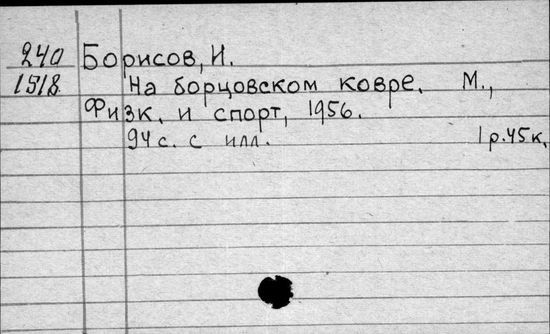 240 Борисов, И.
1518 На борцовском ковре. М.,
Физк. и спорт, 1956.
94 с. с илл. 1 р. 45 к.